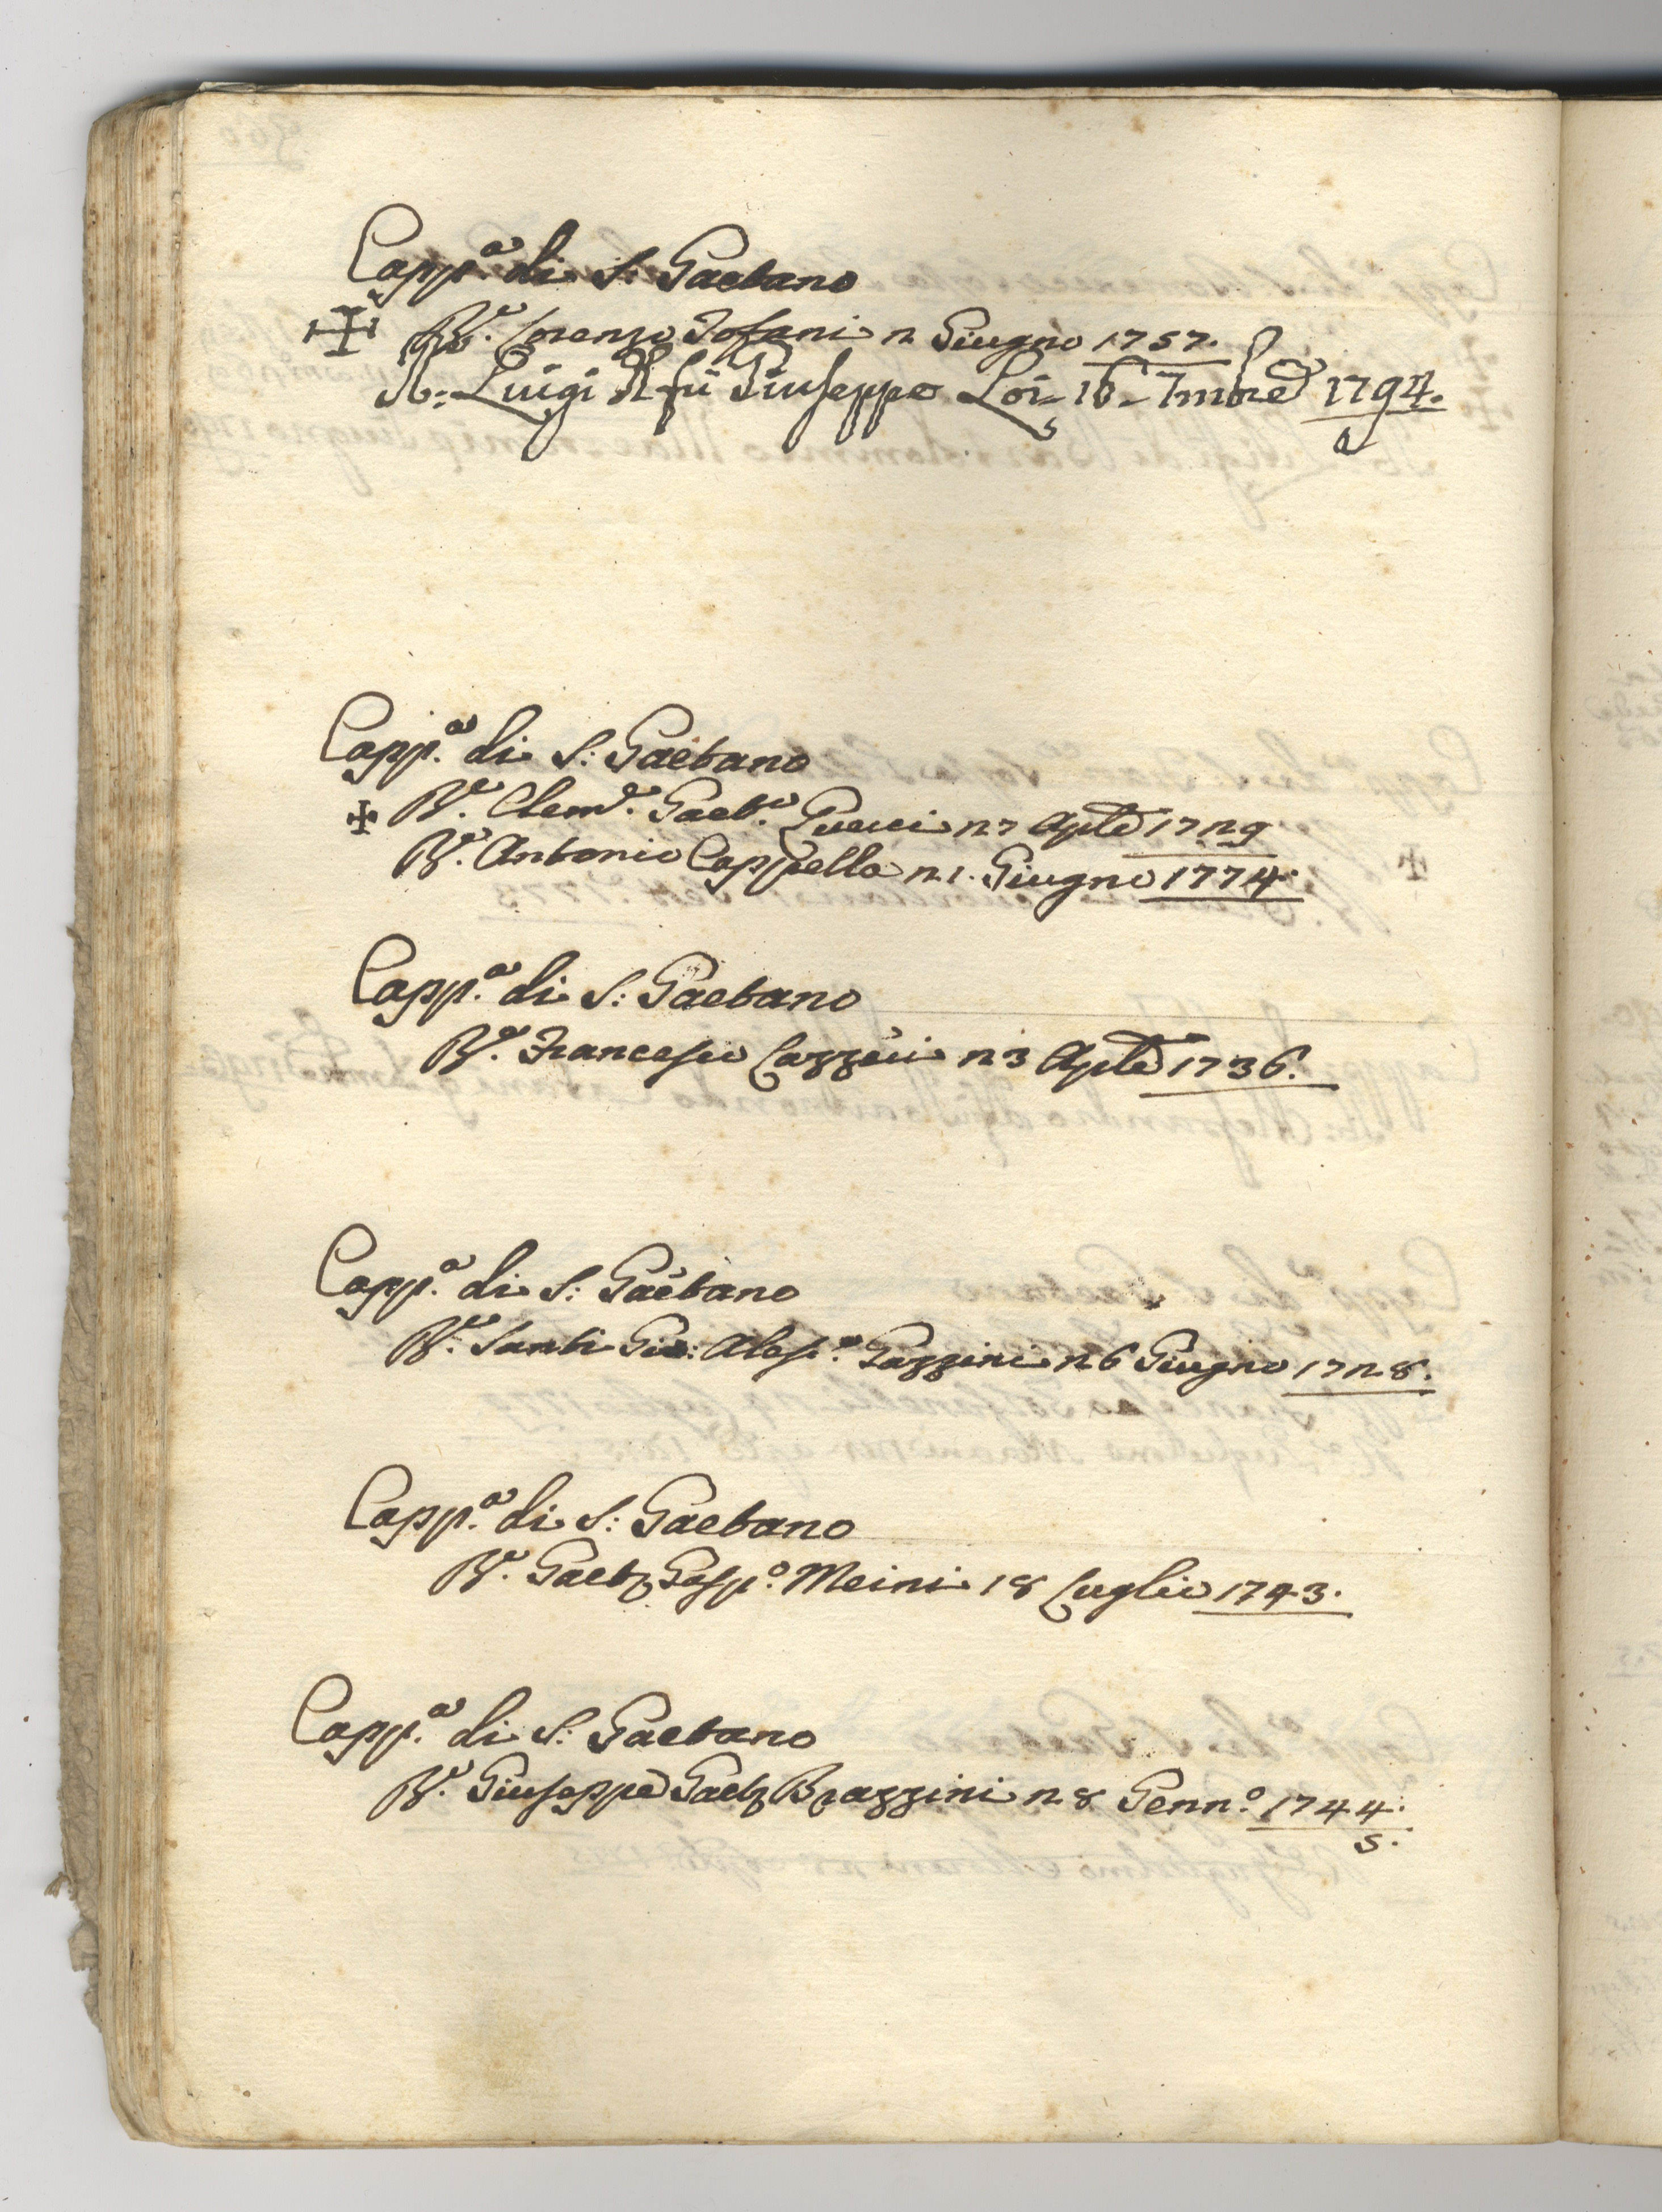 Capp.a di S: Gaetano
R.e Lorenzo Tofani 2 Giugno 1757.
R: Luigi di fù Giuseppe Loi 16 7mbre 1794.
Capp.a di S: Gaetano
R.e Clem.e Gaet.o Pucci 27 Aple 1729
R.e Antonio Cappella 21. Giugno 1774.
Capp.a di S: Gaetano
R.e Francesco 23 Aple 1736.
Capp.a di S: Gaetano
R.e Santi Gio: Aless.o 26 Giugno 1728.
Capp.a di S: Gaetano
R.e Gaet. Gasp.o Meini 18 Luglio 1743.
Capp.a di S: Gaetano
R.e Giuseppe Gaet. Brazzini 28 Genn.o 1744.
5.